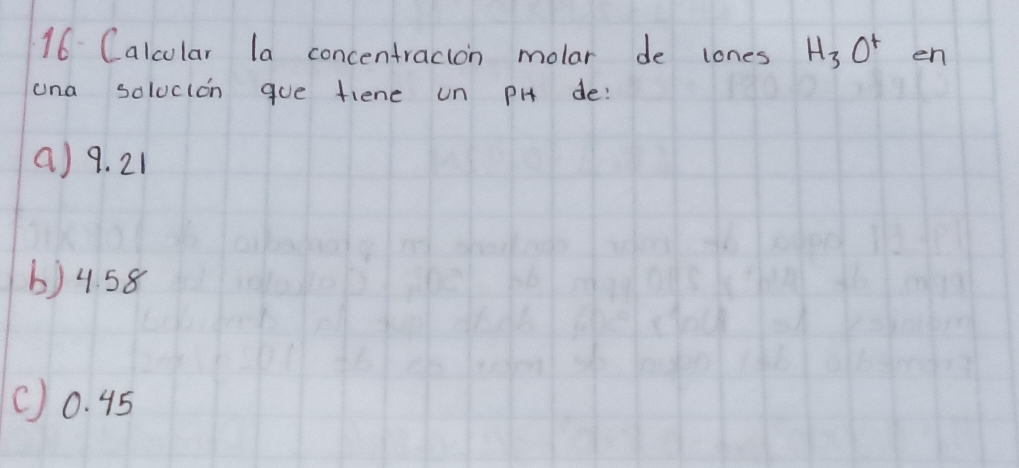 16- Calcular la concentración molar de iones H₃O⁺ en
una solución que tiene un PH de:
a) 9.21
b) 4.58
c) 0.45